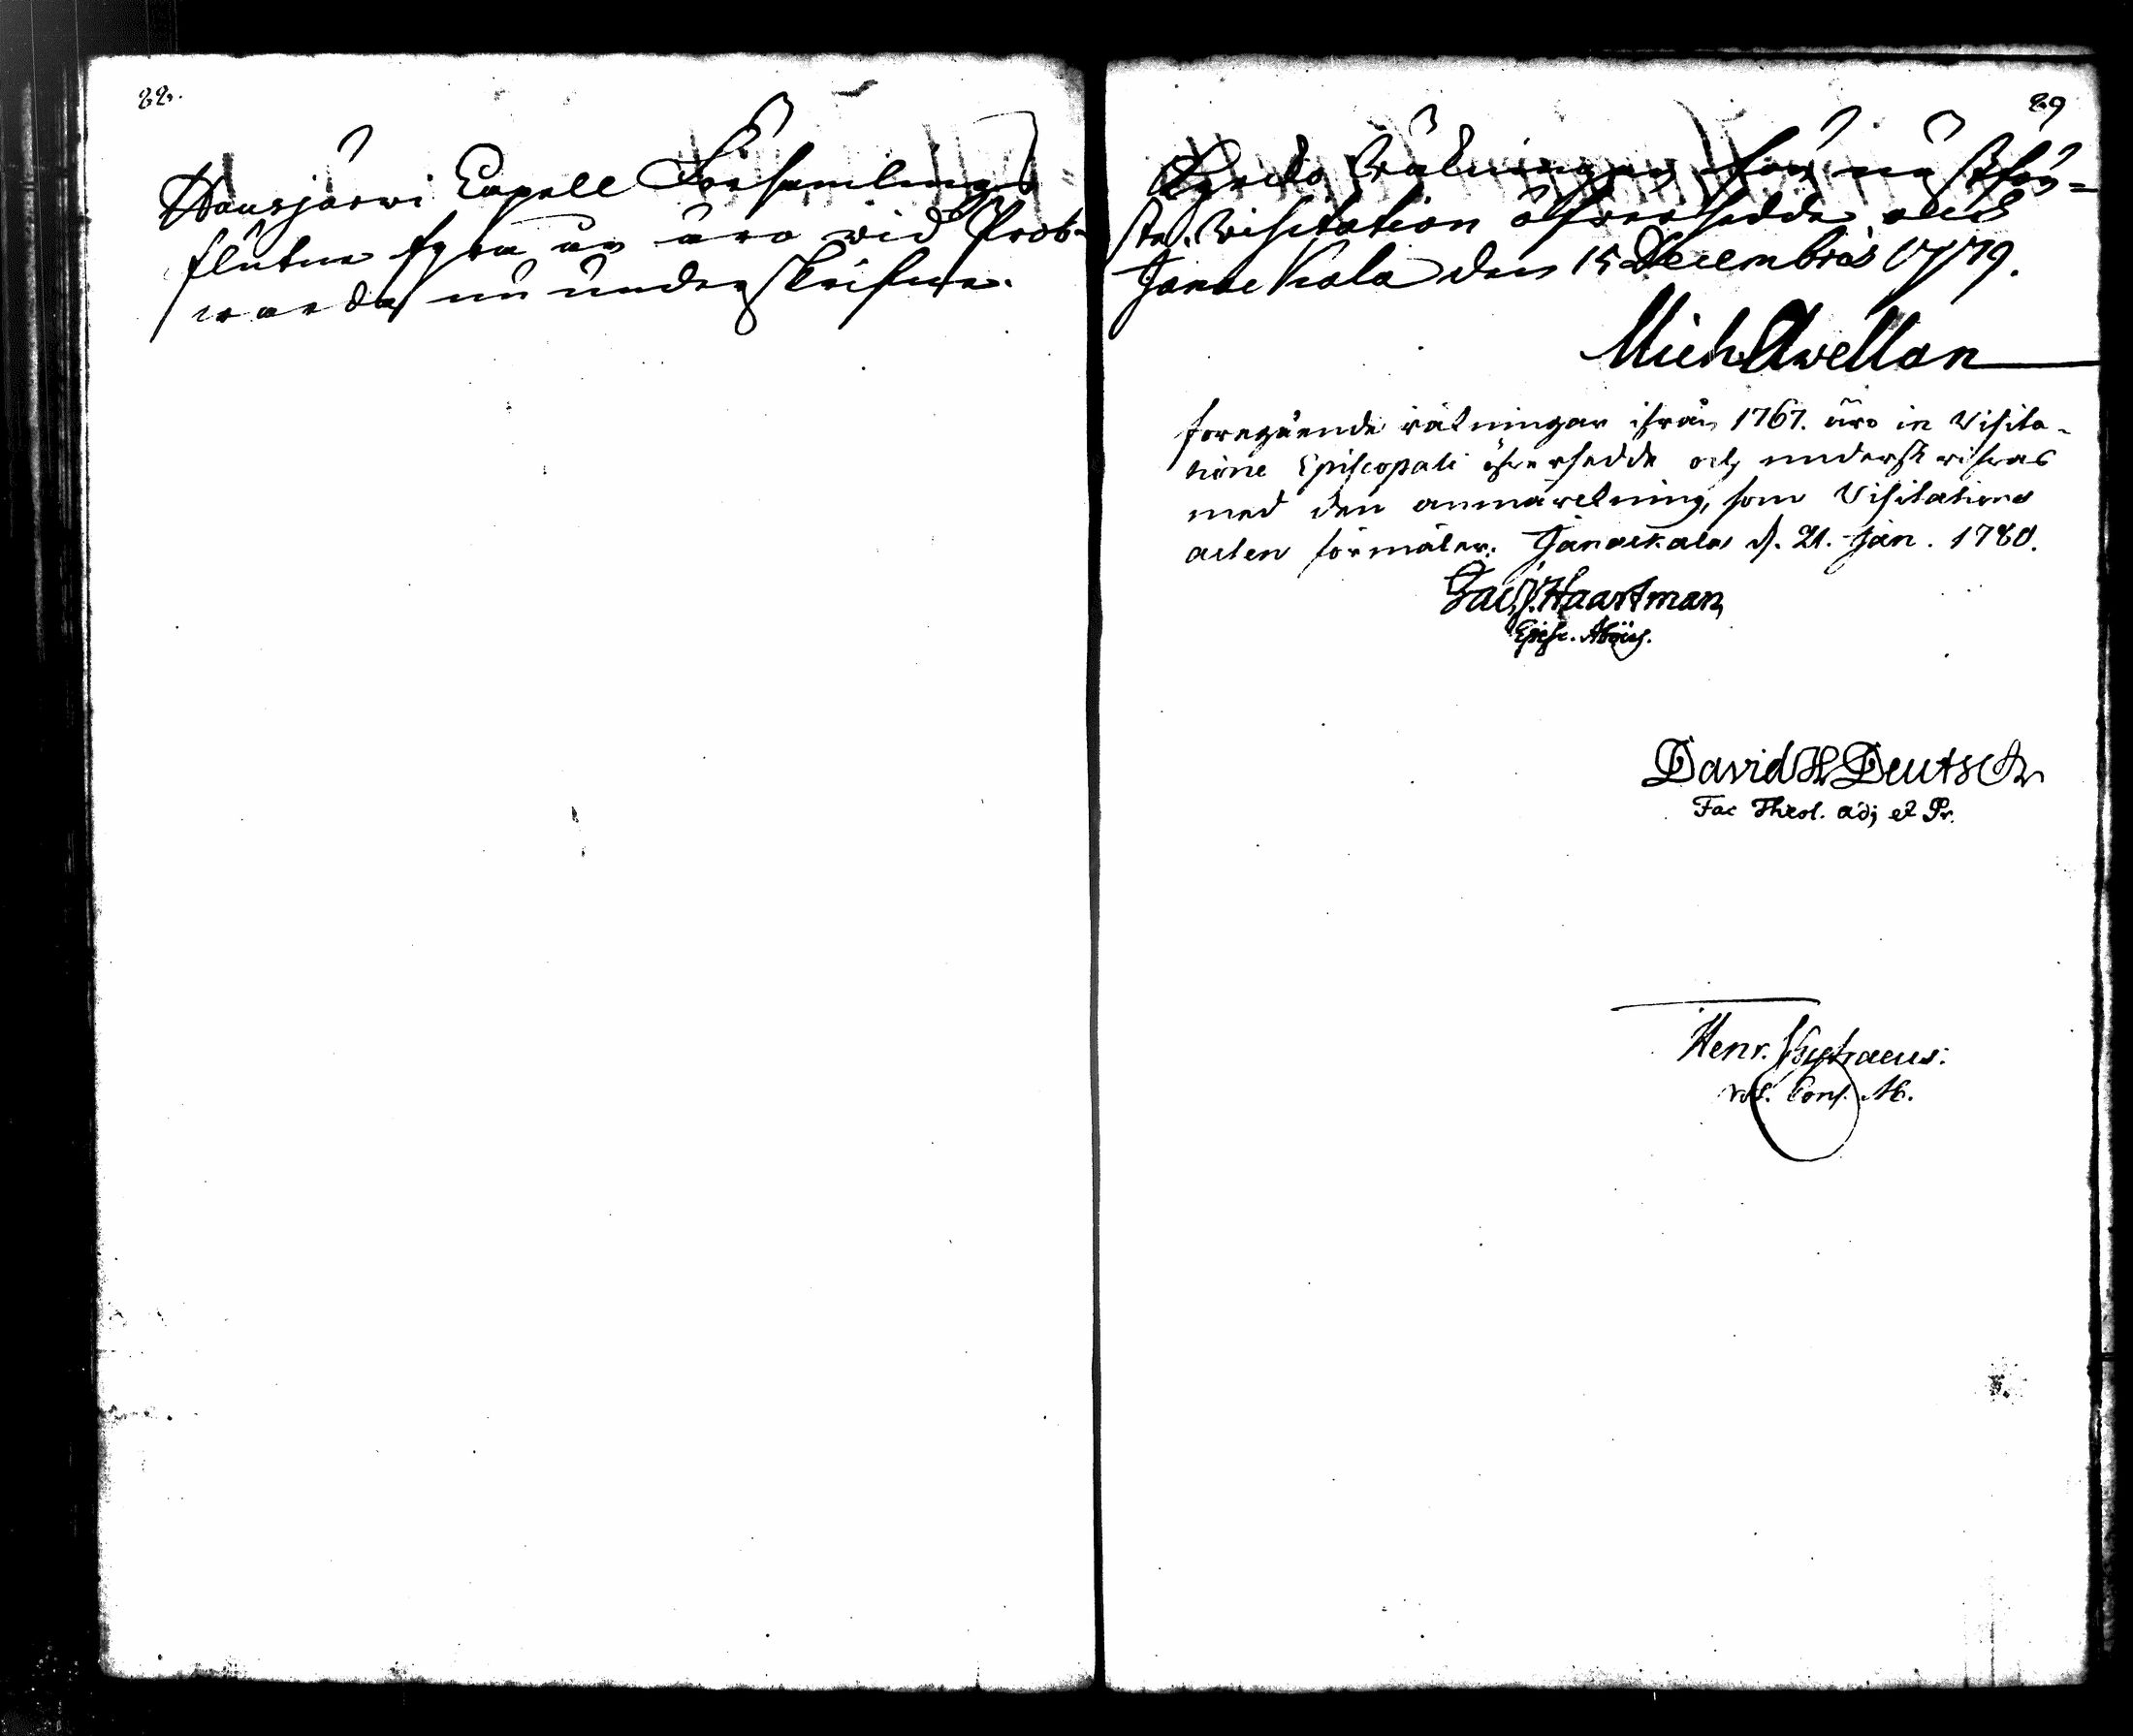 88.
Hausjärwi Capell Församlings
flutne fyra år äro wid Prob-
warda nu underskrifne.
89
Kyrcko Räkningar för näst för-
ste Visitation öfwersedde och
Janackala den 15 Decembris 1779.
Mich Avellan
foregående räkningar ifrån 1767. äro in Visita-
tione Episcopali öfwersedde och underskrifwas
med den anmärckning, som Visitations
acten förmäler. Janackala d. 21. Jan. 1780.
Jac. Haartman
Episc. Aboens.
David H Deutsch
Fac Theol. adj et Pr.
Henr.
Not. Cons.